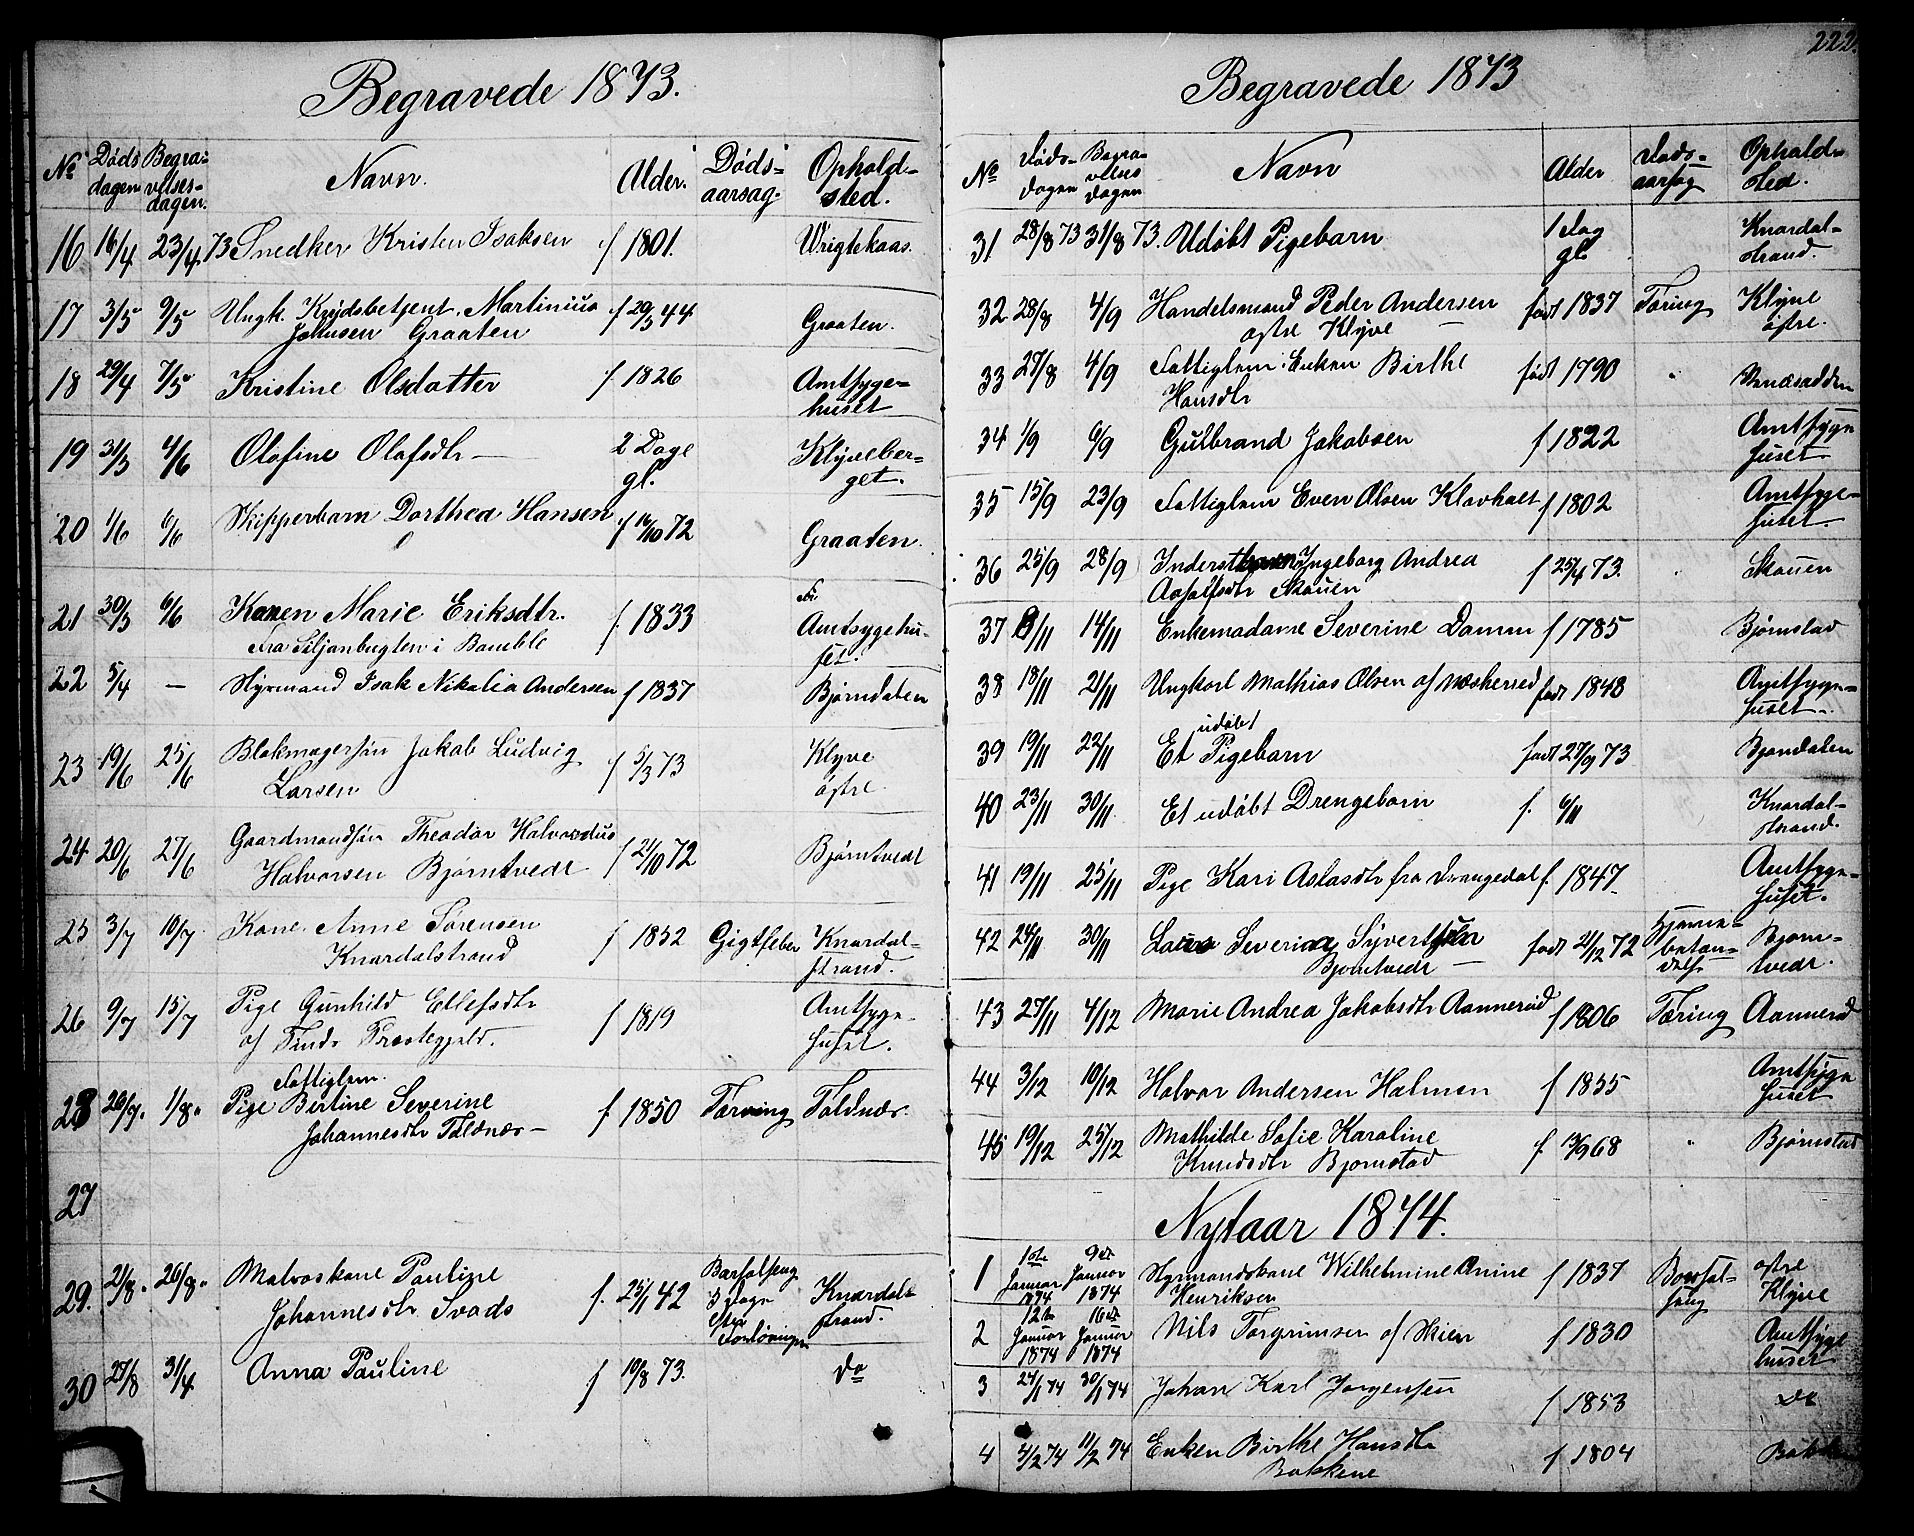 222.
Begravede 1873.
No Døds dagen Begravelses-dagen. Navn. Alder. Døds-aarsag. Ophold-sted.
16 16/4 23/4 73 Snedker Kristen Isaksen f 1801.
17 3/5 9/5 Ungk. Martinius f 29/3 44 Graaten.
Johnsen Graaten
18 29/4 7/5 Kristine Olsdatter f. 1826 Amtsyge-
huset
19 31/3 4/6 Olafine Olafsdtr 2 Dage Klyveber-
gl. get.
20 1/6 6/6 Skipperbarn Dorthea Hansen f 16/10 72 Graaten.
21 30/3 6/6 Karen Marie Eriksdtr. f. 1833 Amtsygehu-
Fra Siljanbugten i Bamble set.
22 5/4 — Hyrmand Isak Nikolia Andersen f 1837 Bjørndalen
23 19/6 25/6 Blokmagersøn Jakob Ludvig f 5/3 73 Klyve
Larsen østre.
24 20/6 27/6 Gaardmandsøn Theodor Halvardus f 21/10 72 Bjørntvedt
Halvorsen Bjørntvedt
25 3/7 10/7 Kone Anne Sørensen f 1852 Gigtfeber Knardal-
Knardalstrand strand.
26 9/7 15/7 Pige Gunhild Ellefsdtr f 1819 Amtsyge-
af Tinds Præstegjeld. huset.
Fattiglem.
28 26/7. 1/8. Pige Bertine Severine f. 1850 Tærring Foldnær.
Johannesdtr
27
29. 21/8. 26/8. Matroskone Pauline f. 25/1 42 Barselseng Knardal-
Johannesdtr 3 Dage efter Forløsningen strand.
30 27/8 31/4 Anna Pauline f 10/8 73. do
Begravede 1873
No Døds-dagen Begravelses dagen Navn Alder Døds-aarsag Ophold-sted.
31 28/8 73 31/8 73. Udøbt Pigebarn 1 Dag Knardal-
gl. strand.
32 28/8 4/9 Handelsmand Peder Andersen født 1837 Tæring Klyve
østre Klyve østre.
33 27/8 4/9 Fattiglem Enken Birthe født 1790
Hansdtr
34 1/9 6/9 Gulbrand Jakobsen f 1822 Amtsyge
huset
35 15/9 23/9 Fattiglem Even Olsen Klovholt f 1802 Amtsyge-
huset
36 25/9 28/9 Inderst Ingeborg Andrea f 25/4 73. Skouen
Skouen
37 8/11 14/11 Enkemadame Severine Damm f 1785 Bjørnstad
38 18/11 21/11 Ungkarl Mathias Olsen af født 1848 Amtsyge-
huset.
udøbt
39 19/11 22/11 Et Pigebarn født 27/9 73 Bjørndalen
40 23/11 30/11 Et udøbt Drengebarn f. 6/11 Knardal-
strand.
41 19/11 25/11 Pige Kari Aslasdtr fra Drangedal f. 1847. Amtsyge-
huset.
42 24/11 30/11 Severin født 21/12 72 Hjerne- Bjørn-
Bjørntvedt betæn-delse tvedt.
43 27/11 4/12 Marie Andrea Jakobsdtr Aannerød f 1806 Tæring Aannerød
44 3/12 10/12 Halvor Andersen Holmen f 1855 Amtsyge
huset
45 19/12 25/12 Mathilde Sofie Karoline f. 13/9 68 Bjørnstad
Knudsdtr Bjørnstad
Nytaar 1874.
1 1ste Januar 1874 9de Januar 1874 Hyrmandskone Wilhelmine Anine f 1837 Barsel- østre
Henriksen seng Klyve
2 12te Januar 1874 16de Januar 1874 Nils Torgrimsen af Skien f 1830 Amtsyge
huset
3 24/1 74 30/1 74 Johan Karl Jørgensen f 1853 do
4 4/2 74 11/2 74 Enken Birthe Hansdtr f 1804
Bakkene